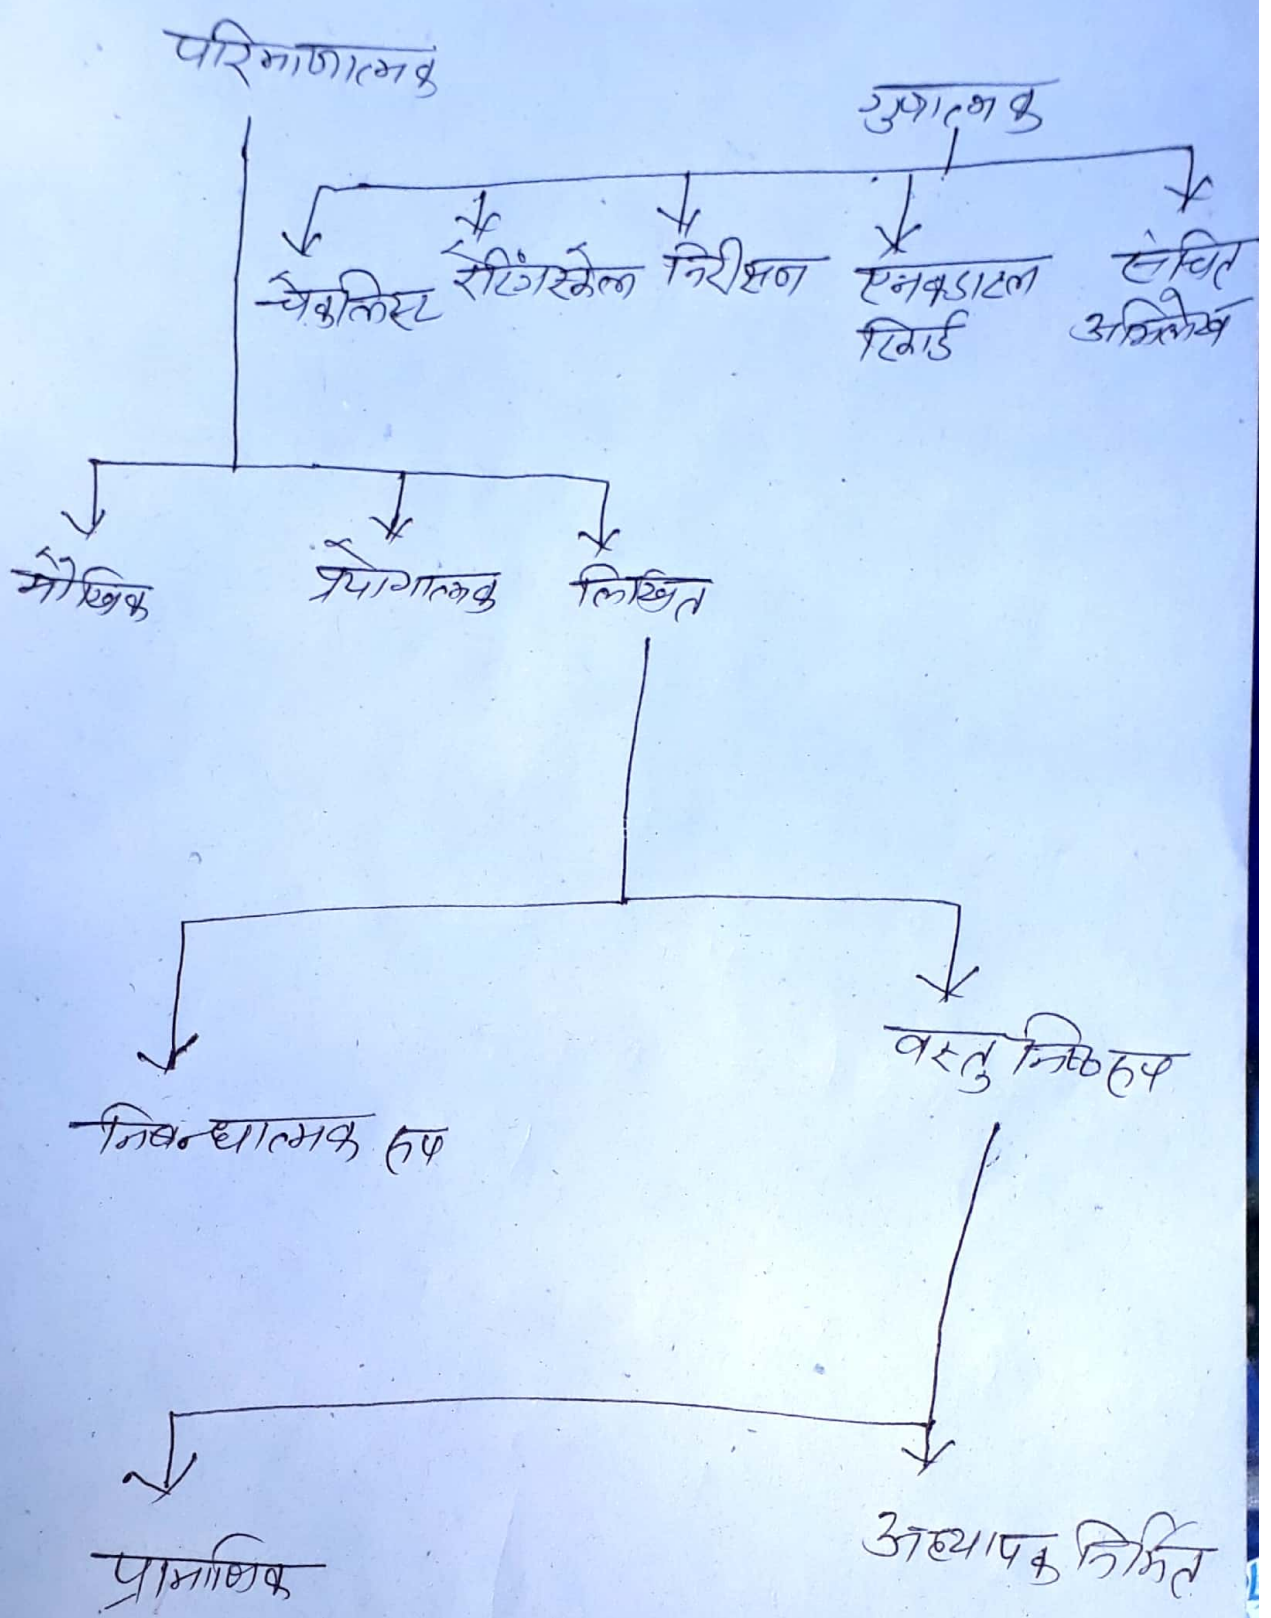 परिमाणात्मक
गुणात्मक
चेकलिस्ट
रेटिंगस्केल
निरीक्षण
एनकडाटल
रिकार्ड
संचित
अभिलेख
मौखिक
प्रयोगात्मक
लिखित
निबन्धात्मक रूप
वस्तुनिष्ठ रूप
प्रामाणिक
अध्यापक निर्मित